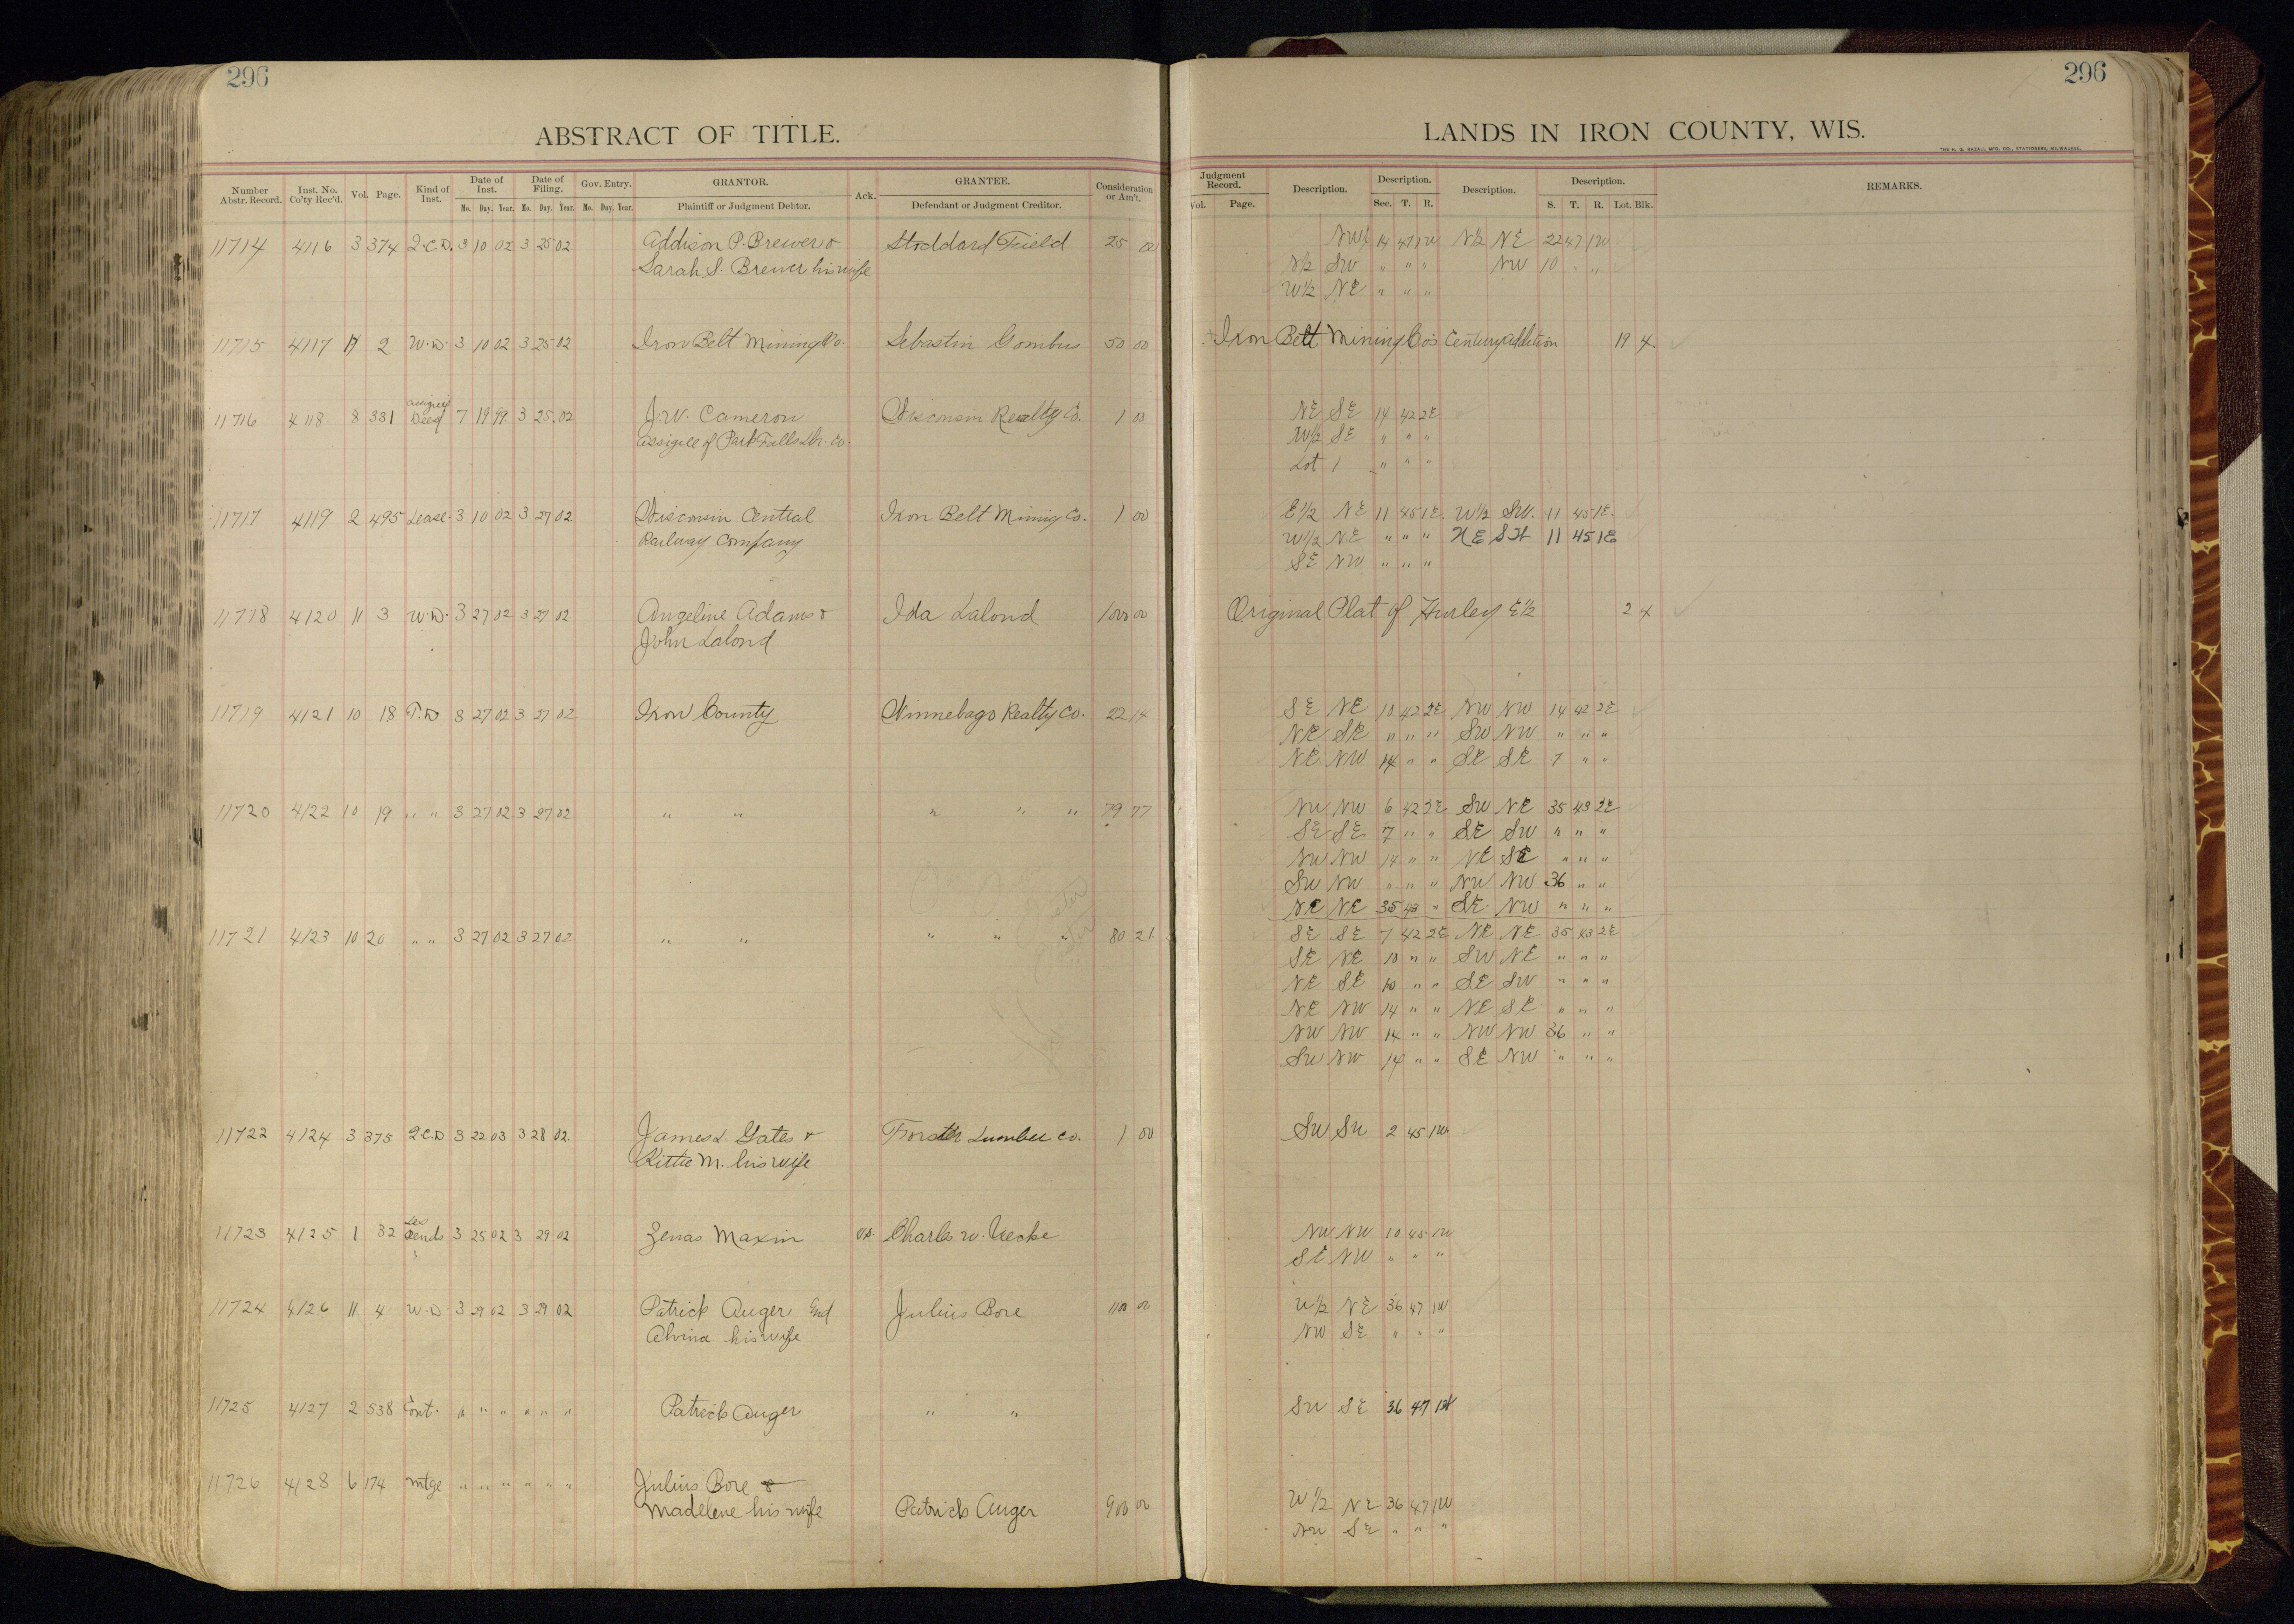 296
ABSTRACT OF TITLE.
Number Abstr. Record. Inst. No. Co'ty Rec'd. Vol. Page. Kind of Inst. Date of Inst. Mo. Day. Year. Date of Filing. Mo. Day. Year. Gov. Entry. Mo. Day. Year. GRANTOR. Plaintiff or Judgment Debtor. Ack. GRANTEE. Defendant or Judgment Creditor. Consideration or Am't.
11714 4116 3 374 Q.C.D. 3 10 02 3 25 02 Addison P. Brewer & Stoddard Field 25 00
Sarah S. Brewer his wife
11715 4117 11 2 W.D. 3 10 02 3 25 02 Iron Belt Mining Co. Sebastin Gombus 50 00
11716 4118 8 331 Deed 7 19 99 3 25 02 J.W. Cameron Wisconsin Realty Co. 1 00
assigee of Park Falls Lbr. Co.
11717 4119 2 495 Lease 3 10 02 3 27 02 Wisconsin Central Iron Belt Mining Co. 1 00
Railway Company
11718 4120 11 3 W.D. 3 27 02 3 27 02 Angeline Adams & Ida Lalond 1000 00
John Lalond
11719 4121 10 18 T.D 3 27 02 3 27 02 Iron County Winnebago Realty Co. 22 14
11720 4122 10 19 " " 3 27 02 3 27 02 " " " " " 79 77
11721 4123 10 20 " " 3 27 02 3 27 02 " " " " " 80 21
11722 4124 3 375 Q.C.D 3 22 03 3 28 02 James L. Gates & Forster Lumber Co. 1 00
Kittie M. his wife
11723 4125 1 32 Lis Pends 3 25 02 3 29 02 Zenas Maxin vs. Charles W. Uecke
11724 4126 11 4 W.D 3 29 02 3 29 02 Patrick Auger and Julius Bore 1100 00
Alvina his wife
11725 4127 2 538 Cont. " " " " " " Patrick Auger " "
11726 4128 6 174 Mtge " " " " " " Julius Bore &
Madelene his wife Patrick Auger 900 00
296
LANDS IN IRON COUNTY, WIS.
Judgment Record. Vol. Page. Description. Description. Sec. T. R. Description. Description. S. T. R. Lot. Blk. REMARKS.
NW 14 47 1W N½ NE 22 47 1W
N½ SW " " " NW 10 " "
W½ NE " " "
Iron Belt Mining Co's Century Addition 19 4
NE SE 14 42 2E
W½ SE " " "
Lot 1 " " "
E½ NE 11 45 1E W½ SW 11 45 1E
W½ NE " " " NE SW 11 45 1E
SE NW " " "
Original Plat of Hurley E½ 2 4
SE NE 10 42 2E NW NW 14 42 2E
NE SE " " " SW NW " " "
NE NW 14 " " SE SE 7 " "
NW NW 6 42 2E SW NE 35 43 2E
SE SE 7 " " SE SW " " "
NW NW 14 " " NE SE " " "
SW NW " " " NW NW 36 " "
NE NE 35 43 " SE NW " " "
SE SE 7 42 2E NE NE 35 43 2E
SE NE 10 " " SW NE " " "
NE SE 10 " " SE SW " " "
NE NW 14 " " NE SE " " "
NW NW 14 " " NW NW 36 " "
SW NW 14 " " SE NW " " "
SW SW 2 45 1W
NW NW 10 45 1W
SE NW " " "
W½ NE 36 47 1W
NW SE " " "
SW SE 36 47 1W
W½ NE 36 47 1W
NW SE " " "